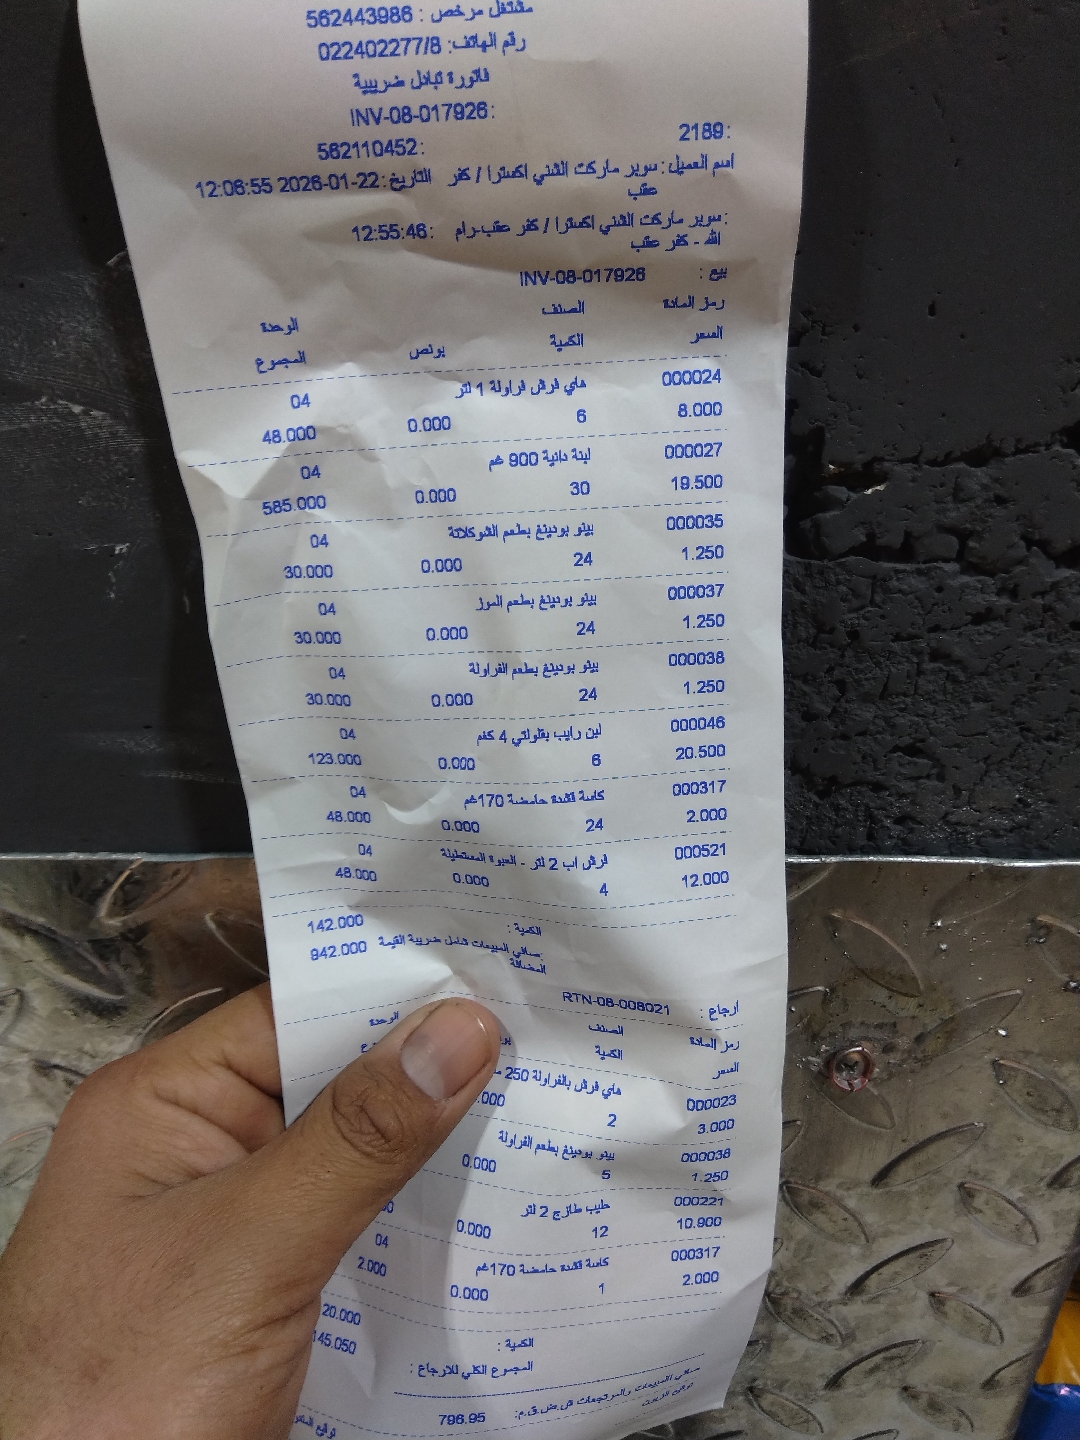 مشتغل مرخص : 562443986
رقم الهاتف: 022402277/8
فاتورة تبادل ضريبية
INV-08-017926:
2189: 562110452:
اسم العميل : سوبر ماركت الشني اكسترا / كفر عقب التاريخ: 2026-01-22 12:06:55
: سوبر ماركت الشني اكسترا / كفر عقب-رام الله - كفر عقب : 12:55:46
بيع : INV-08-017926
رمز المادة الصنف الوحدة
السعر الكمية بونص المجموع
000024 هاي فرش فراولة 1 لتر 04
8.000 6 0.000 48.000
000027 لبنة دانية 900 غم 04
19.500 30 0.000 585.000
000035 بينو بودينغ بطعم الشوكلاتة 04
1.250 24 0.000 30.000
000037 بينو بودينغ بطعم الموز 04
1.250 24 0.000 30.000
000038 بينو بودينغ بطعم الفراولة 04
1.250 24 0.000 30.000
000046 لبن رايب بقلولتي 4 كغم 04
20.500 6 0.000 123.000
000317 كاسة قشدة حامضة 170غم 04
2.000 24 0.000 48.000
000521 فرش اب 2 لتر - العبوة المستطيلة 04
12.000 4 0.000 48.000
الكمية : 142.000
صافي المبيعات شامل ضريبة القيمة المضافة: 942.000
ارجاع : RTN-08-008021
رمز المادة الصنف الوحدة
السعر الكمية
000023 هاي فرش بالفراولة 250
3.000 2 .000
000038 بينو بودينغ بطعم الفراولة
1.250 5 0.000
000221 حليب طازج 2 لتر
10.900 12 0.000
000317 كاسة قشدة حامضة 170غم 04
2.000 1 0.000 2.000
الكمية : 20.000
المجموع الكلي للارجاع : 145.050
صافي المبيعات والمرتجعات ش.ض.ق.م: 796.95
توقيع